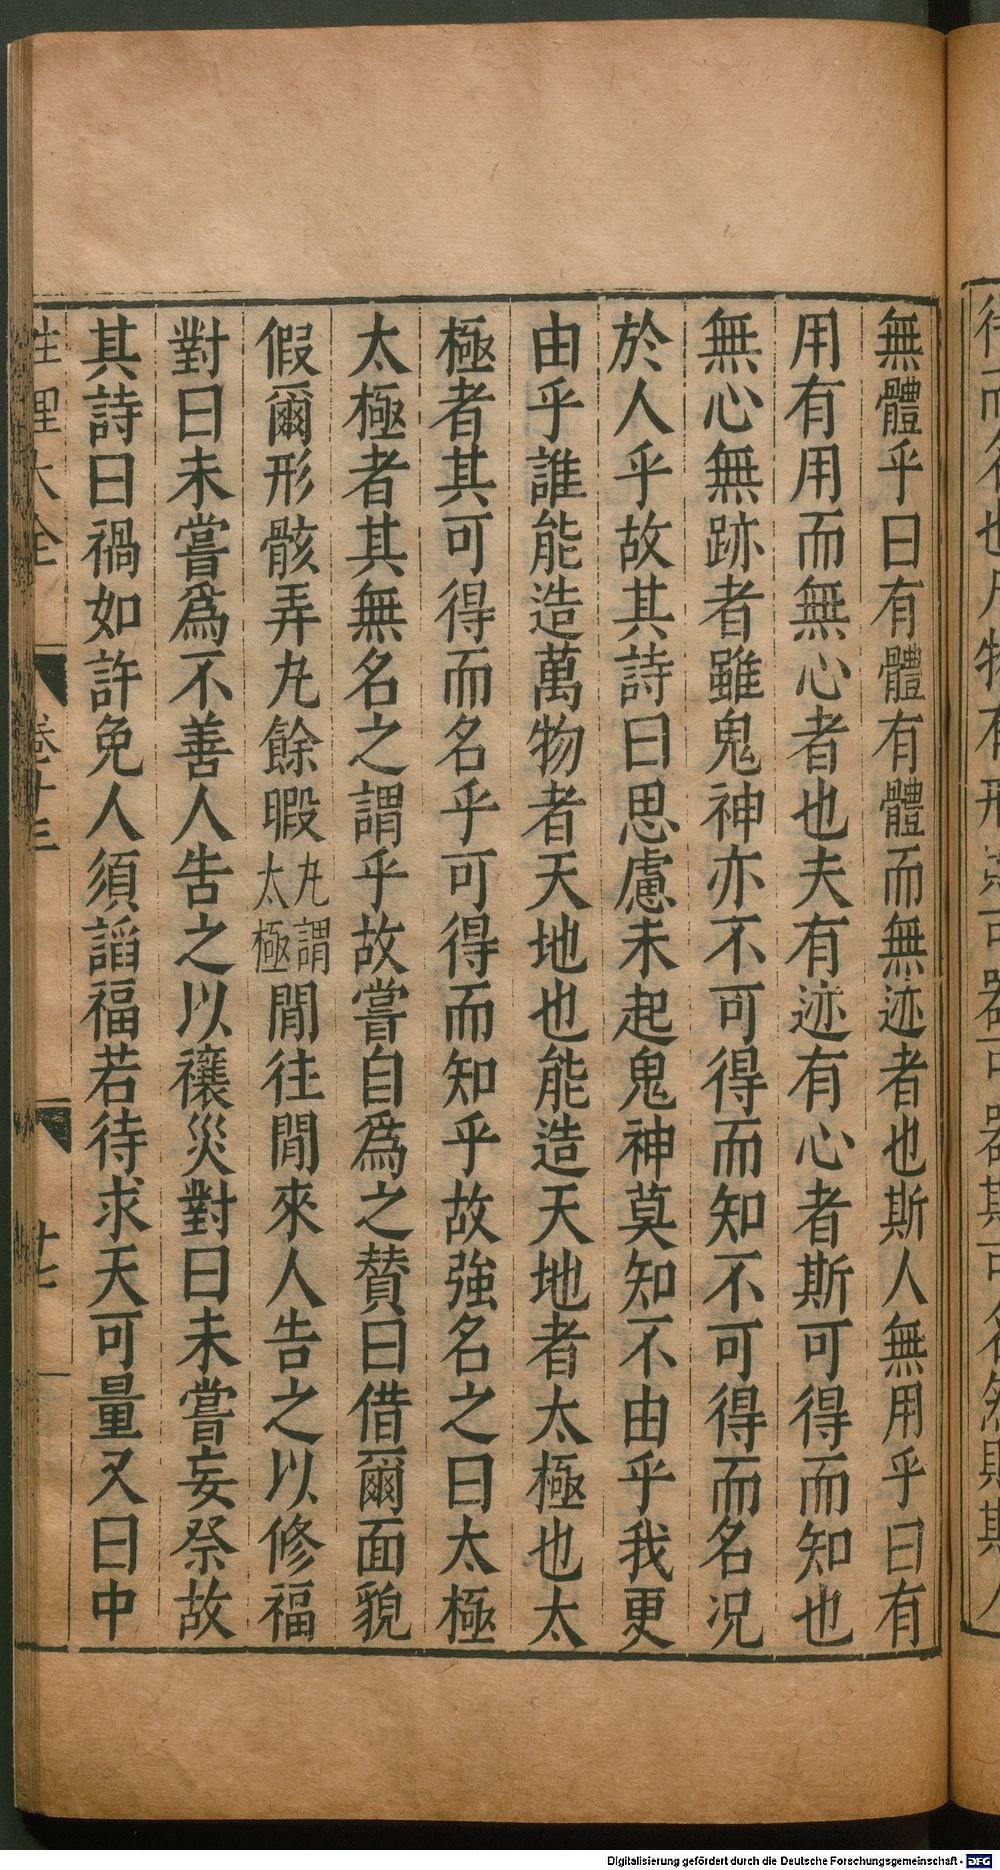 無體乎曰有體有體而無迹者也斯人無用乎曰有
用有用而無心者也夫有迹有心者斯可得而知也
無心無跡者雖鬼神亦不可得而知不可得而名况
於人乎故其詩曰思慮未起鬼神莫知不由乎我更
由乎誰能造萬物者天地也能造天地者太極也太
極者其可得而名乎可得而知乎故強名之曰太極
太極者其無名之謂乎故嘗自爲之賛曰借爾面貌
假爾形骸弄丸餘暇丸謂太極閒往閒來人告之以修福
對曰未嘗爲不善人告之以禳災對曰未嘗妄祭故
其詩曰禍如許免人須諂福若待求天可量又曰中
性理大全 卷十三 廿七
Digitalisierung gefördert durch die Deutsche Forschungsgemeinschaft - DFG